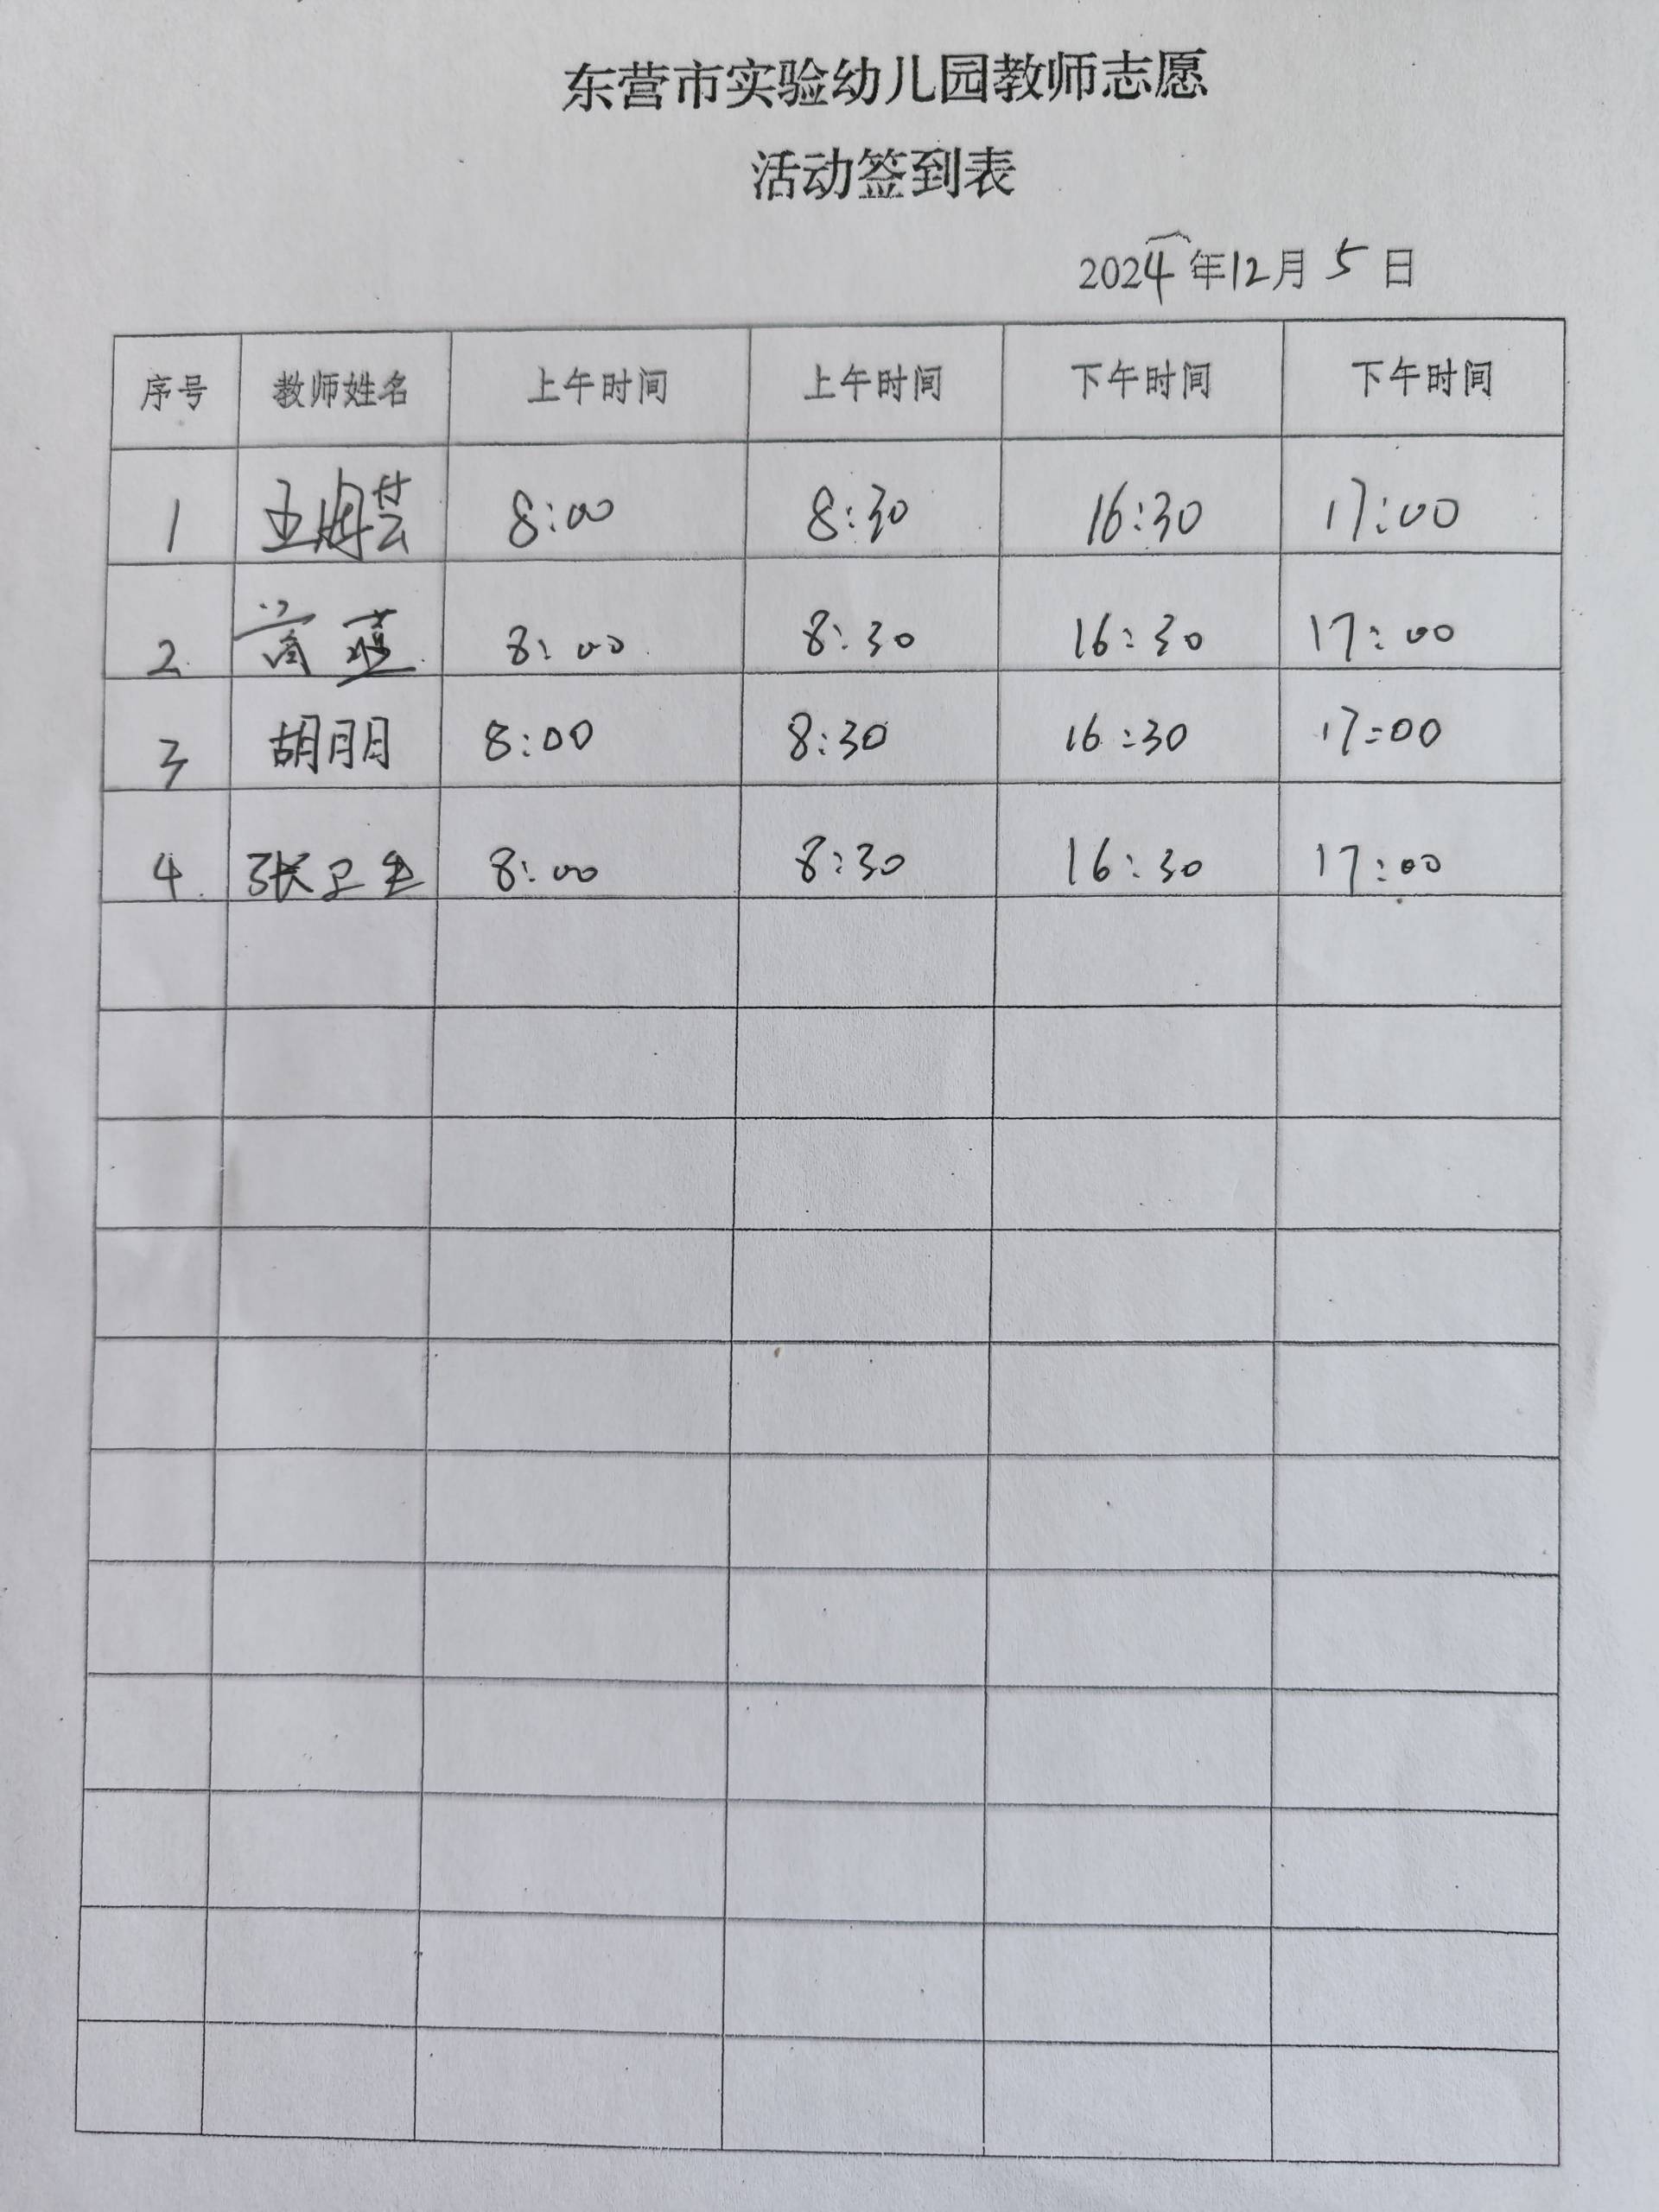 东营市实验幼儿园教师志愿
活动签到表
2024年12月5日
序号 教师姓名 上午时间 上午时间 下午时间 下午时间
1 8:00 8:30 16:30 17:00
2. 8:00 8:30 16:30 17:00
3 胡朋 8:00 8:30 16:30 17:00
4. 张卫 8:00 8:30 16:30 17:00